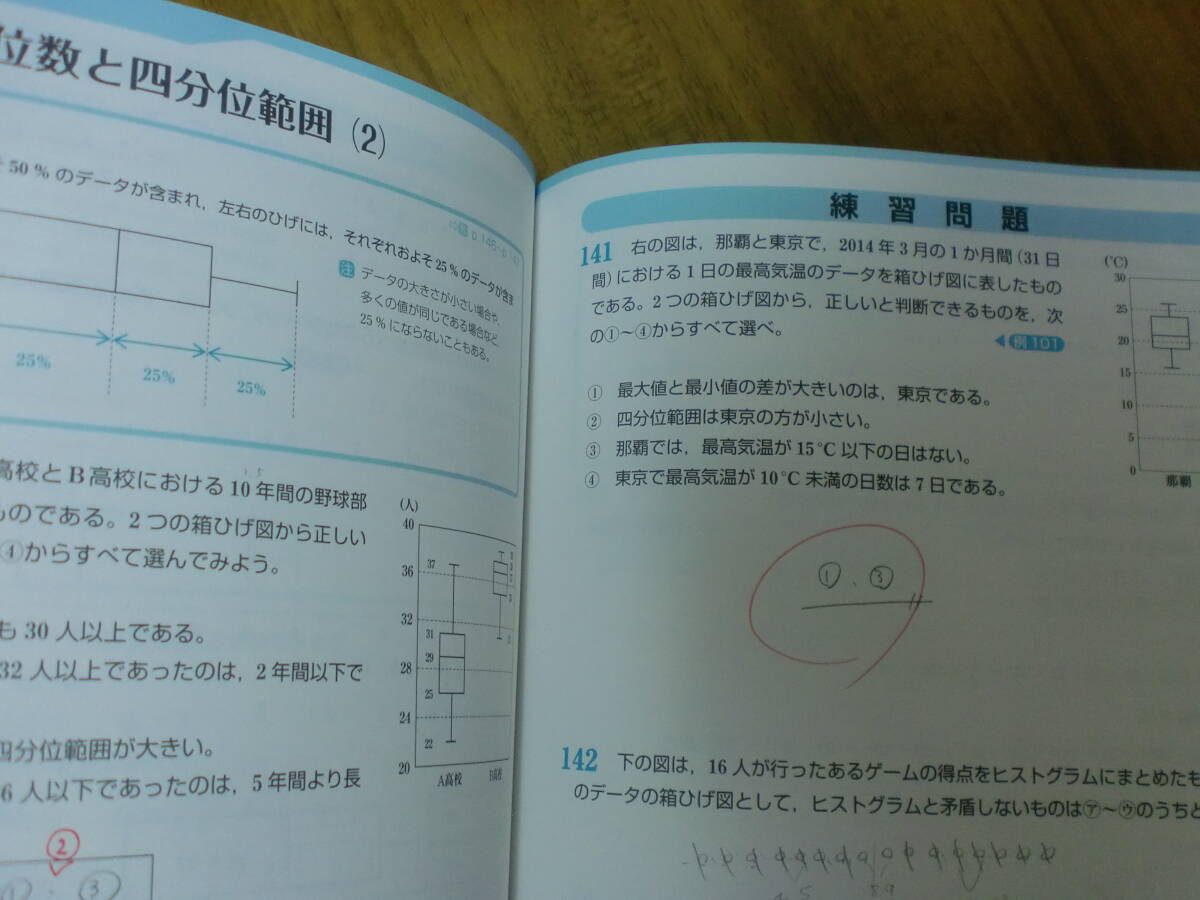 位数と四分位範囲 (2)
50%のデータが含まれ,左右のひげには,それぞれおよそ25%のデータが含ま
注 データの大きさが小さい場合や,
多くの値が同じである場合など,
25%にならないこともある。
25%
25%
25%
高校とB高校における10年間の野球部
ものである。2つの箱ひげ図から正しい
④からすべて選んでみよう。
も30人以上である。
32人以上であったのは,2年間以下で
四分位範囲が大きい。
6人以下であったのは,5年間より長
(人)
40
36
32
28
24
20
37
31
29
25
22
A高校
B高校
②
① ・ ③
練習問題
141 右の図は,那覇と東京で,2014年3月の1か月間(31日
間)における1日の最高気温のデータを箱ひげ図に表したもの
である。2つの箱ひげ図から,正しいと判断できるものを,次
の①~④からすべて選べ。
例101
① 最大値と最小値の差が大きいのは,東京である。
② 四分位範囲は東京の方が小さい。
③ 那覇では,最高気温が15℃以下の日はない。
④ 東京で最高気温が10℃未満の日数は7日である。
(℃)
30
25
20
15
10
5
0
那覇
①、③
142 下の図は,16人が行ったあるゲームの得点をヒストグラムにまとめたも
のデータの箱ひげ図として,ヒストグラムと矛盾しないものは㋐~㋒のうちど